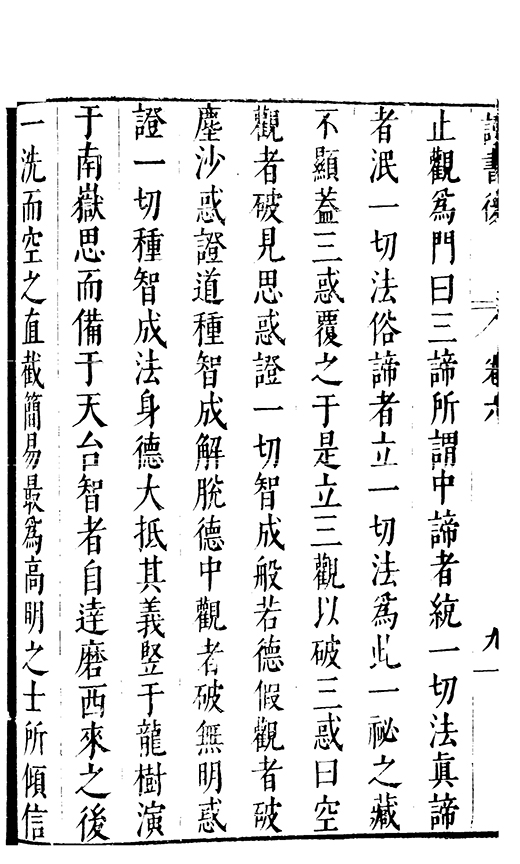 讀書後 卷六 九
止觀爲門曰三諦所謂中諦者統一切法眞諦
者泯一切法俗諦者立一切法爲此一祕之藏
不顯蓋三惑覆之于是立三觀以破三惑曰空
觀者破見思惑證一切智成般若德假觀者破
塵沙惑證道種智成解脫德中觀者破無明惑
證一切種智成法身德大抵其義竪于龍樹演
于南嶽思而備于天台智者自達磨西來之後
一洗而空之直截簡易最爲高明之士所傾信